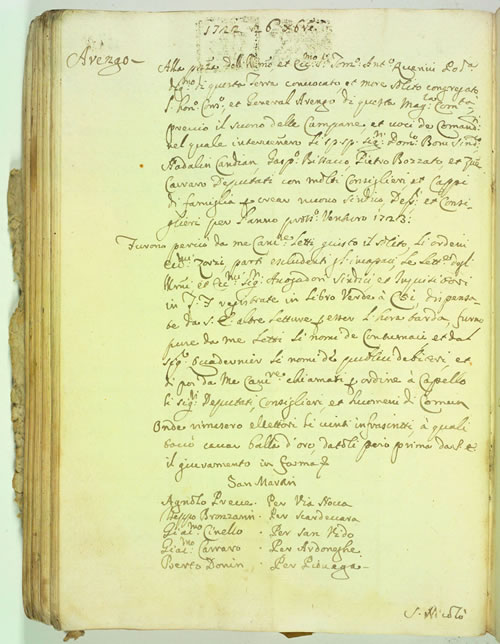 1722 26 Xbre
Avengo
Alla preza dell Illmo et Ecc.mo Sr. Tomo Anto Querini Po.tà
di questa Terra convocato et more solito congregato
l'hono. Conso. et General Avengo di questa Mag.
previo il suono delle Campane, et voci de Comand.
nel quale intervenero li sp. sp. sig.ri Domo Boni
Nadalin Candian Gasp. Bissacco Pietro Bozzato et
Carraro Deputati con molti Consiglieri et Cappi
di famiglia p crear nuovo Sindico, Dep. et Consi-
glieri per l'anno pross.o Venturo 1723:
Furono perciò da me Canre. Letti giusto il solito, li ordeni
Zorzi, parti escludenti gl'incapaci, le Lettre degli
Illmi et Sig.ri Avogadori Sindici et Inquisitori
in T. F. registrate in Libro Verde à C
te da S. E. altre letture p esser l'hora tarda, furno
pure da me Letti li nomi de Contumaci et dal
Sig. Quadernier li nomi de publici debitori et
di poi da me Canre. chiamati p ordine à Capello
li sig.ri Deputati Consiglieri, et huomeni di Comun
Onde rimasero ellettori li vinti infrascritti à quali
toccò cavar balle d'oro, datoli però prima da S. E.
il giuramento in forma
San Martin
Agnolo Prevve · Per Via Nova
Bronzarin · Per Scardevara
Giac.mo Cinello · Per San Vido
Giac.mo Carraro · Per Ardoneghe
Berto Donin · Per
S. Nicolò